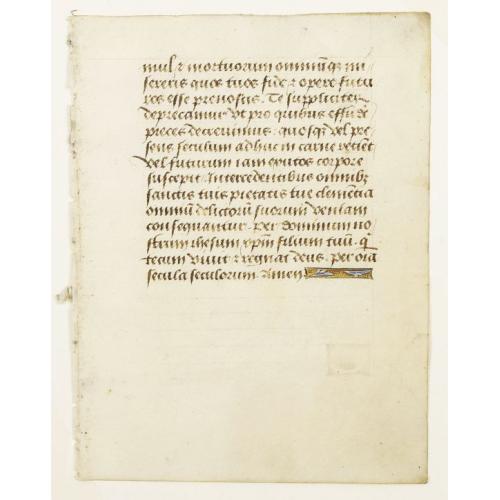 mul et mortuorum omniūqꝫ mi
sereris quos tuos fide et opere futu
ros esse prenoscis. Te suppliciter
deprecamur vt pro quibus effūdē
preces decreuimus quosqꝫ vel pre
sens seculum adhuc in carne retinet
vel futurum iam exutos corpore
suscepit. Intercedentibus omnibꝫ
sanctis tuis pietatis tue clementia
omniū delictorū suorum veniam
consequantur. per dominum no
strum ihesum xpm̄ filium tuū. q̄
tecum viuit et regnat deus. per oīa
secula seculorum amen